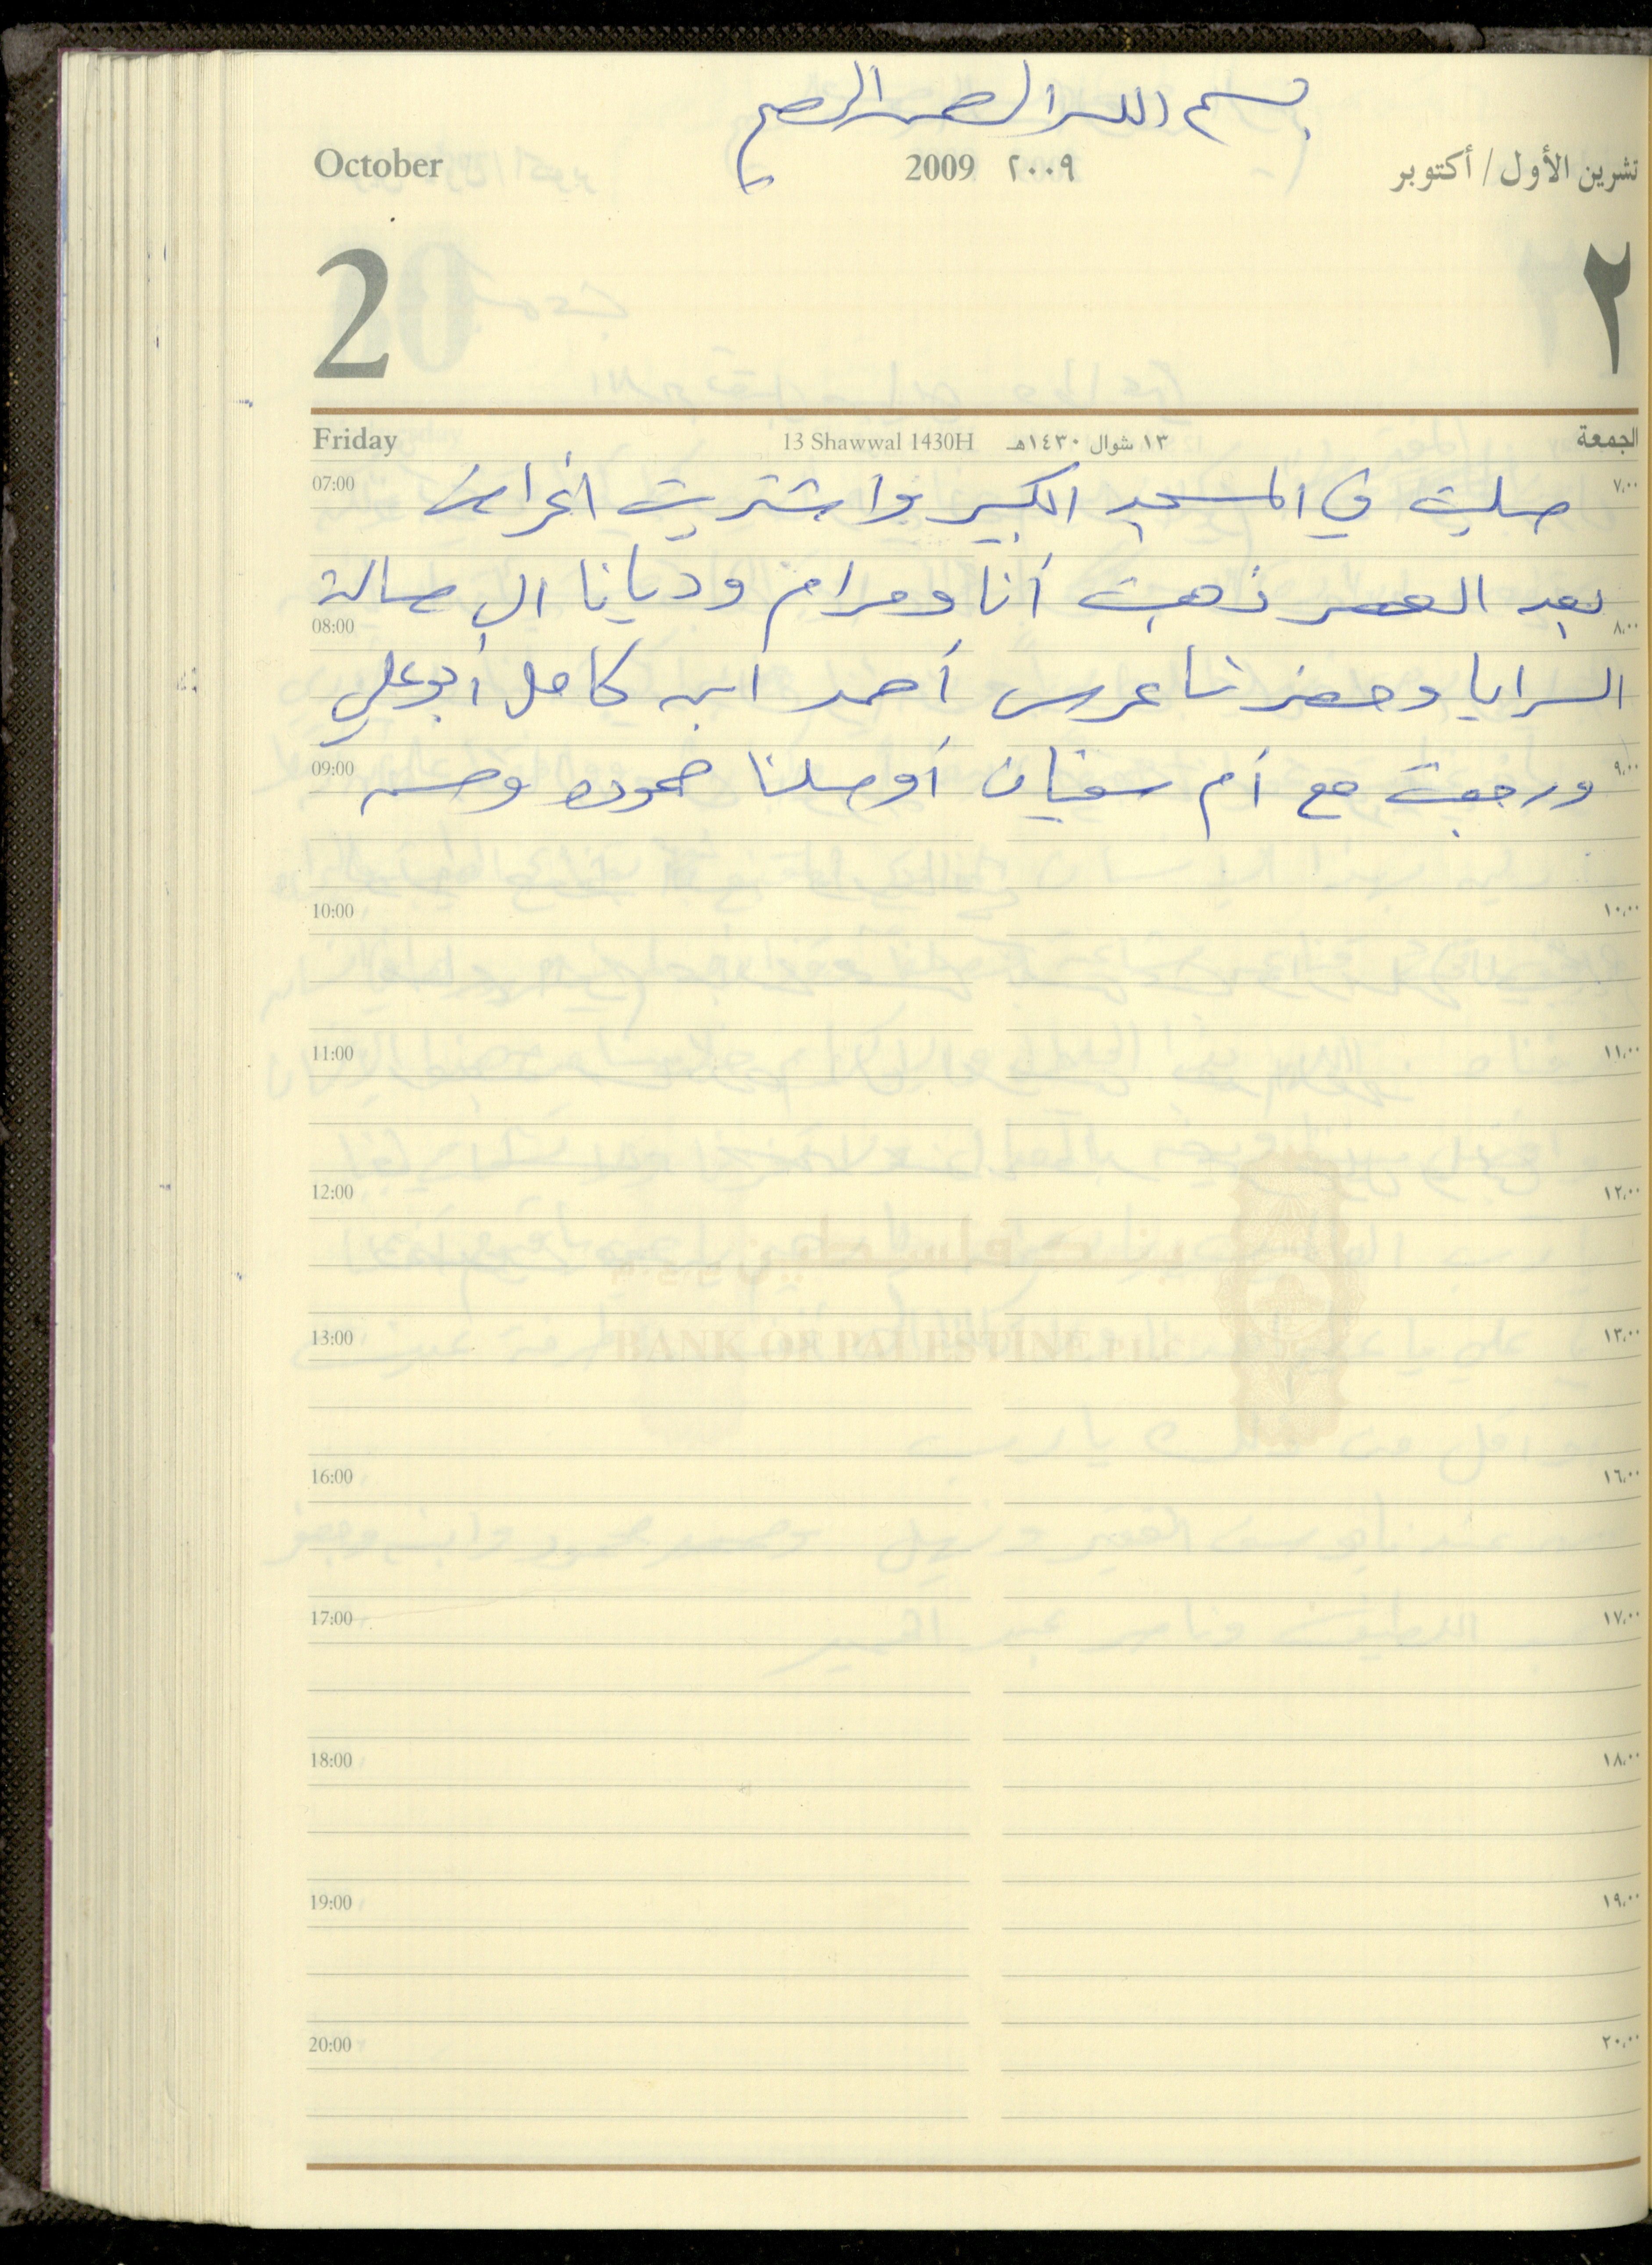 بسم الله الرحمن الرحيم
October 2009 ٢٠٠٩ تشرين الأول / أكتوبر
2 ٢
Friday 13 Shawwal 1430H ١٣ شوال ١٤٣٠هـ الجمعة
07:00 صليت في المسجد الكبير واشتريت اغراض ٧,٠٠
بعد العصر ذهبت أنا ومرام وديانا الى صالة
08:00 ٨,٠٠
السرايا وحضرنا عرس أحمد ابن كامل أبو علي
09:00 ورجعت مع أم سفيان أوصلنا حمودة وحسن ٩,٠٠
10:00 ١٠,٠٠
11:00 ١١,٠٠
12:00 ١٢,٠٠
13:00 ١٣,٠٠
BANK OF PALESTINE
16:00 ١٦,٠٠
17:00 ١٧,٠٠
18:00 ١٨,٠٠
19:00 ١٩,٠٠
20:00 ٢٠,٠٠